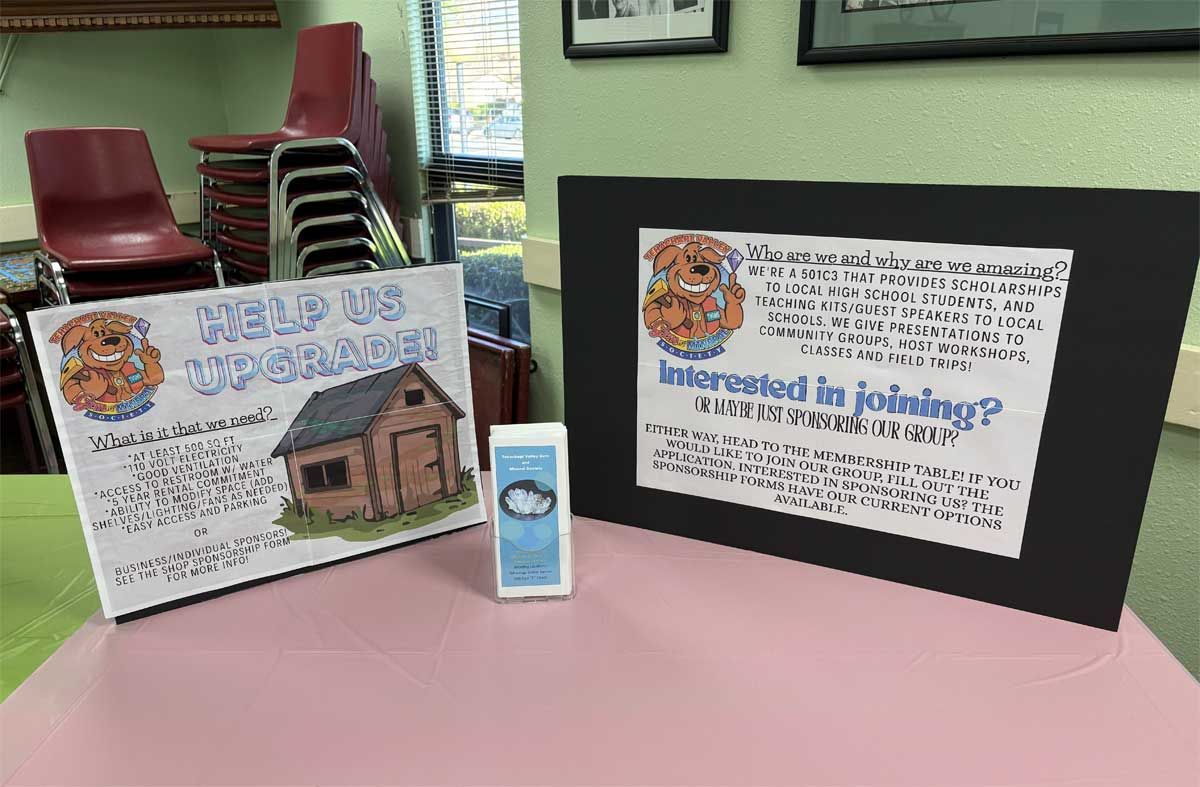 TEHACHAPI VALLEY
Gem & Mineral
SOCIETY
HELP US
UPGRADE!
What is it that we need?
*AT LEAST 500 SQ FT
*110 VOLT ELECTRICITY
*GOOD VENTILATION
*ACCESS TO RESTROOM W/ WATER
*5 YEAR RENTAL COMMITMENT
*ABILITY TO MODIFY SPACE (ADD
SHELVES/LIGHTING/FANS AS NEEDED)
*EASY ACCESS AND PARKING
OR
BUSINESS/INDIVIDUAL SPONSORS!
SEE THE SHOP SPONSORSHIP FORM
FOR MORE INFO!
Tehachapi Valley Gem
and
Mineral Society
TEHACHAPI VALLEY
Gem & Mineral
SOCIETY
Who are we and why are we amazing?
WE'RE A 501C3 THAT PROVIDES SCHOLARSHIPS
TO LOCAL HIGH SCHOOL STUDENTS, AND
TEACHING KITS/GUEST SPEAKERS TO LOCAL
SCHOOLS. WE GIVE PRESENTATIONS TO
COMMUNITY GROUPS, HOST WORKSHOPS,
CLASSES AND FIELD TRIPS!
Interested in joining?
OR MAYBE JUST SPONSORING OUR GROUP?
EITHER WAY, HEAD TO THE MEMBERSHIP TABLE! IF YOU
WOULD LIKE TO JOIN OUR GROUP, FILL OUT THE
APPLICATION. INTERESTED IN SPONSORING US? THE
SPONSORSHIP FORMS HAVE OUR CURRENT OPTIONS
AVAILABLE.